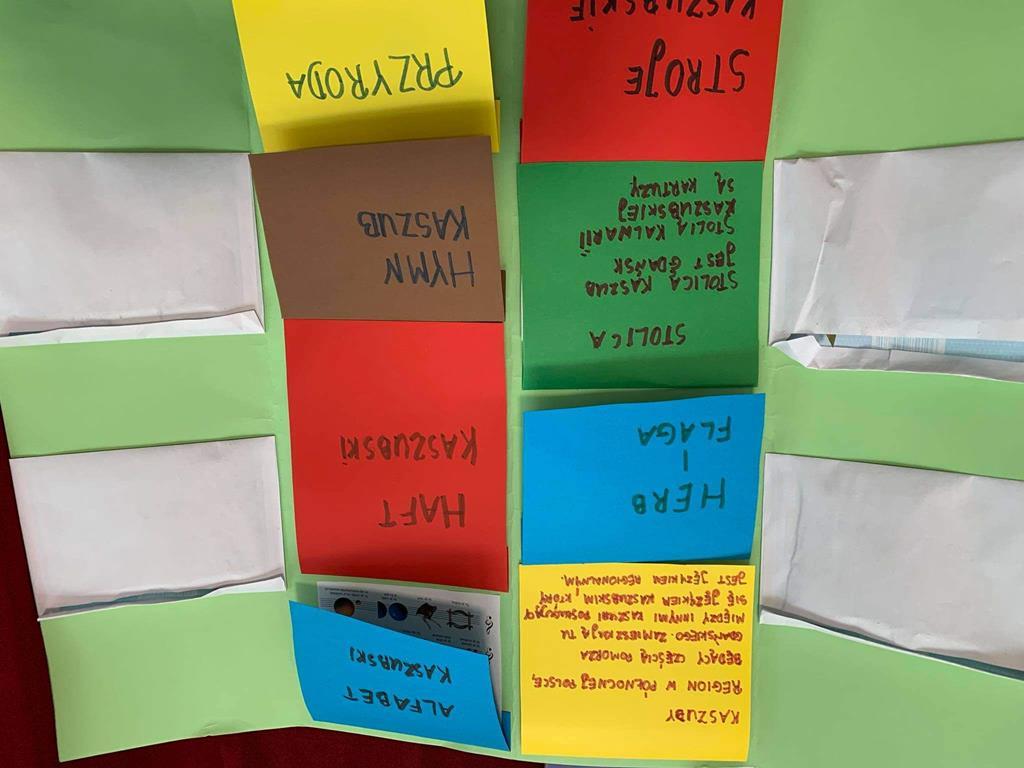 KASZUBY
REGION W PÓŁNOCNEJ POLSCE,
BĘDĄCY CZĘŚCIĄ POMORZA
GDAŃSKIEGO. ZAMIESZKUJĄ TU
MIĘDZY INNYMI KASZUBI POSŁUGUJĄCY
SIĘ JĘZYKIEM KASZUBSKIM, KTÓRY
JEST JĘZYKIEM REGIONALNYM.
HERB
I
FLAGA
STOLICA
STOLICĄ KASZUB
JEST GDAŃSK
STOLIĄ KALWARII
KASZUBSKIEJ
SĄ KARTUZY
STROJE
KASZUBSKIE
ALFABET
KASZUBSKI
HAFT
KASZUBSKI
HYMN
KASZUB
PRZYRODA